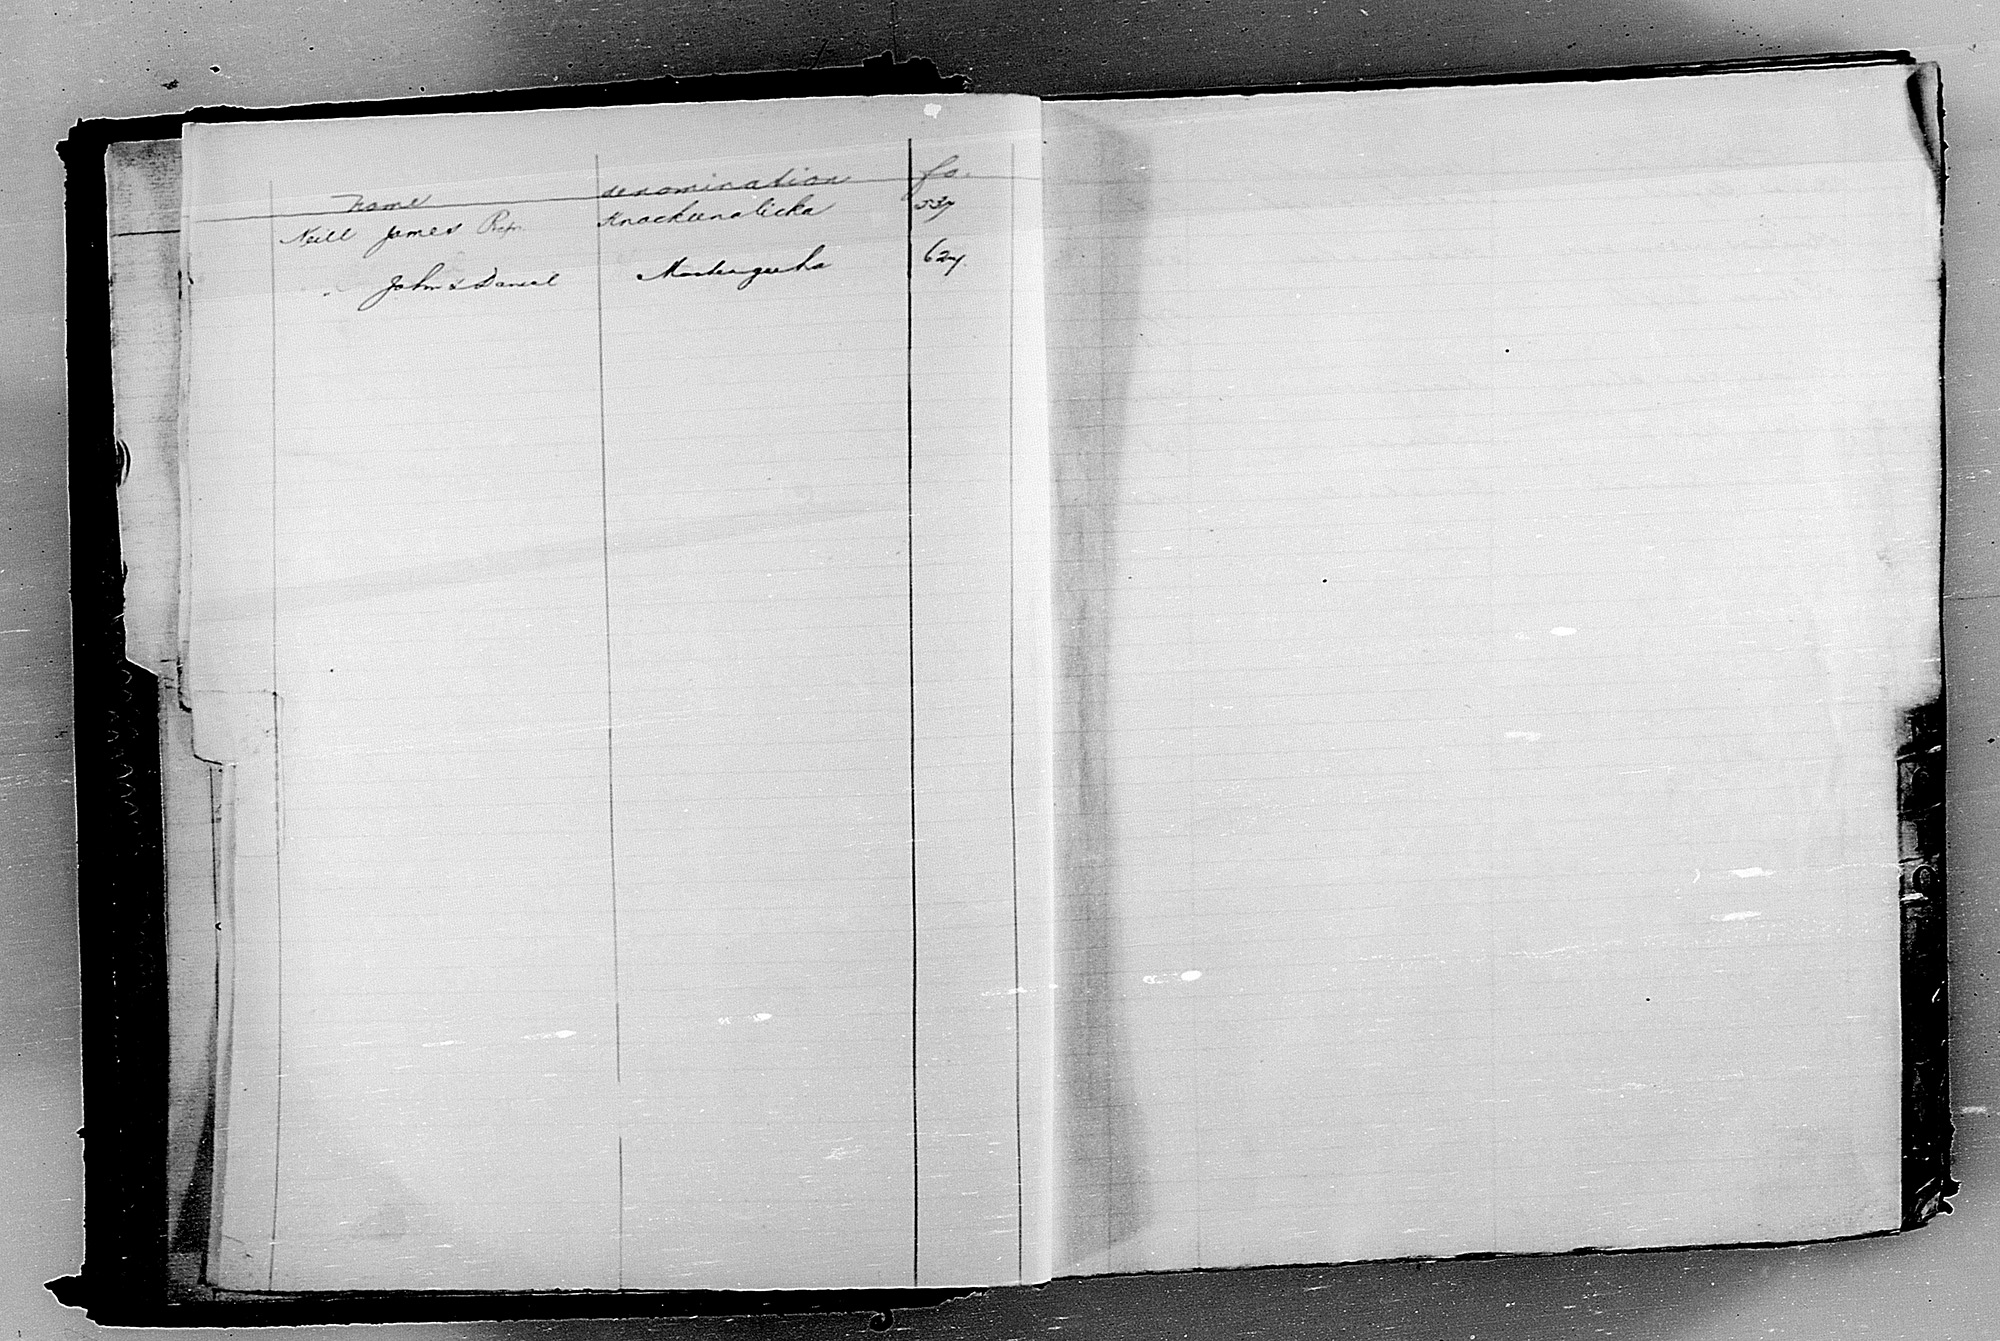 name denomination fo.
Neill James Knockunalicka 537
John & Daniel 627